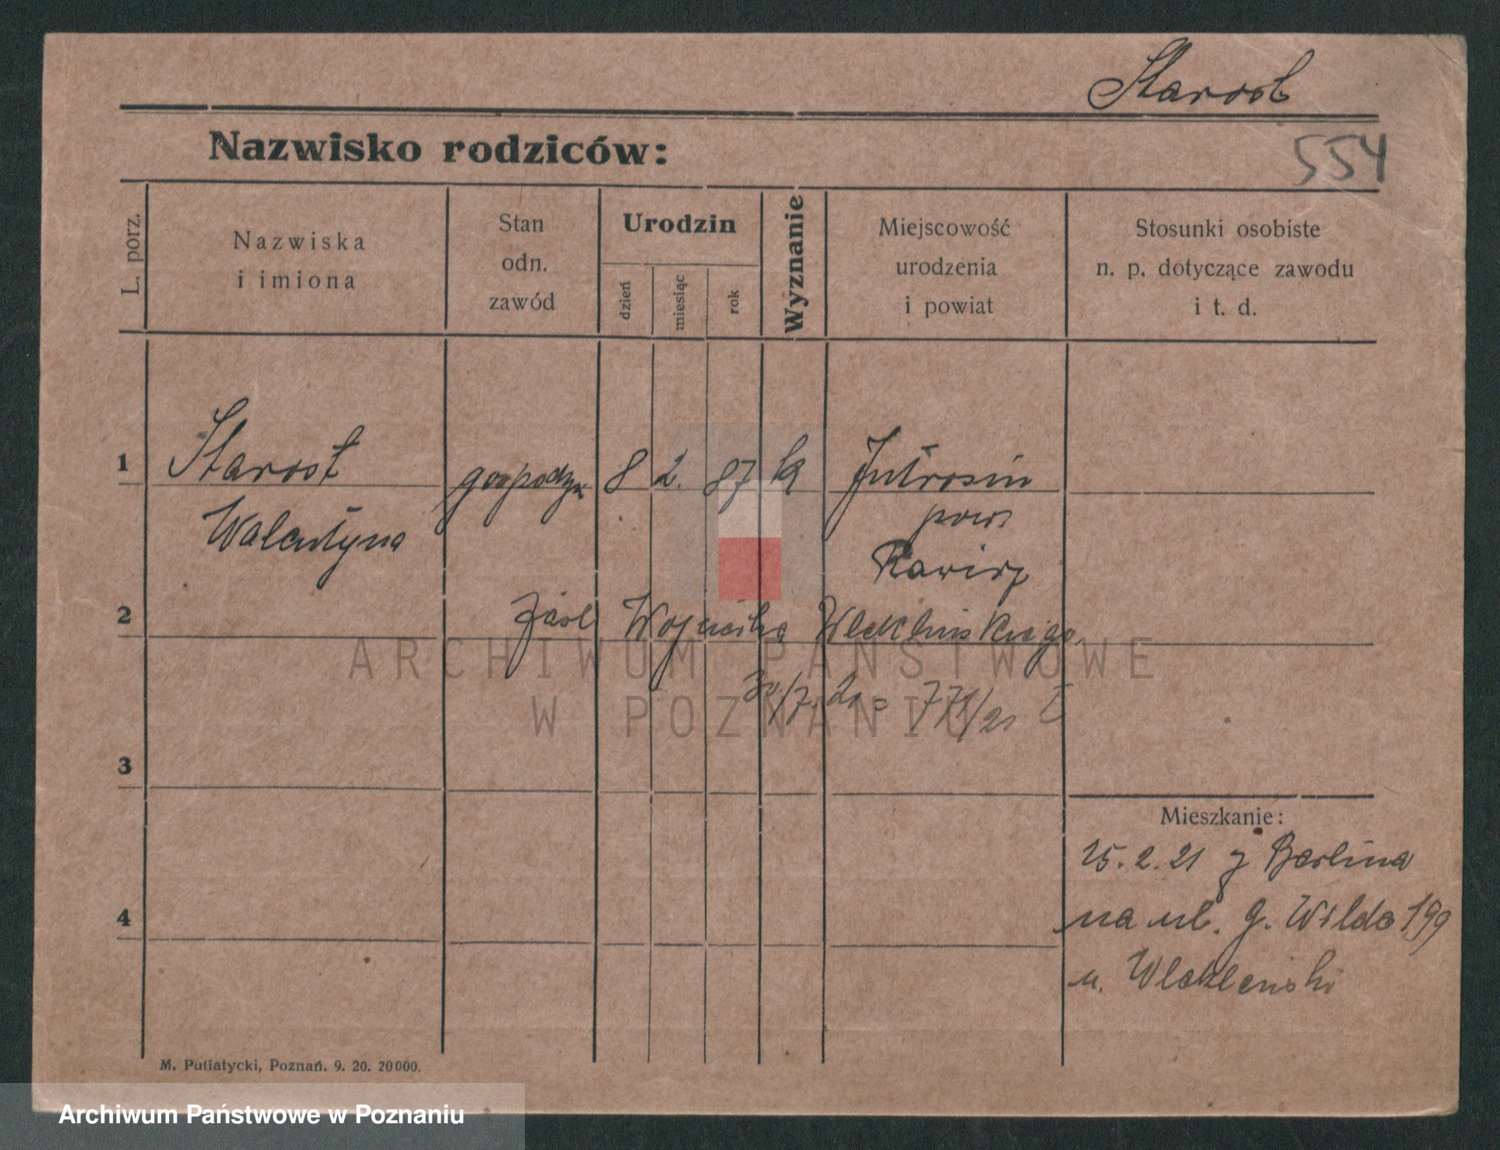 Starost
554
Nazwisko rodziców:
L. porz.
Nazwiska
i imiona
Stan
odn.
zawód
Urodzin
dzień
miesiąc
rok
Wyznanie
Miejscowość
urodzenia
i powiat
Stosunki osobiste
n. p. dotyczące zawodu
i t. d.
1
Starost gospodyn 8 2. 87 k Jutrosin
Walentyna pow.
Rawicz
2
Wojciecha
ARCHIWUM PAŃSTWOWE
W POZNANIU
30/7. 21 = 771/21 I
3
Mieszkanie:
25. 2. 21 z Berlina
4
na ul. G. Wilda 199
u.
M. Putiatycki, Poznań. 9. 20. 20 000.
Archiwum Państwowe w Poznaniu